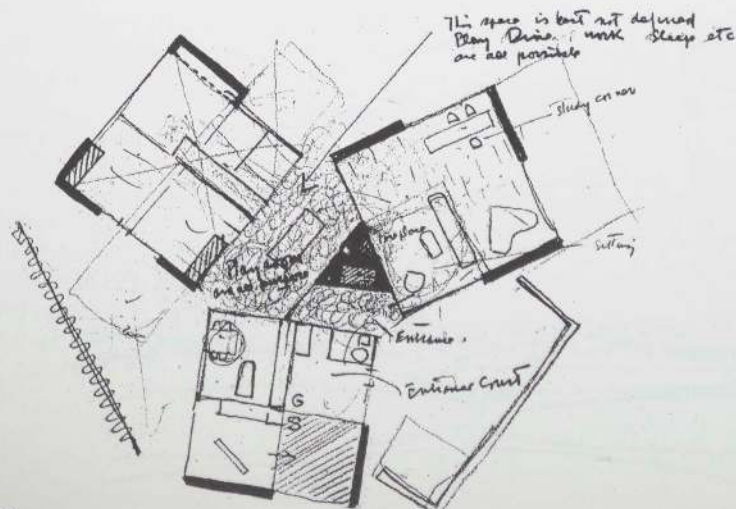 This space is best not defined
Play Dine. work Sleep etc
are all possible
study corner
sitting
fireplace
L
Play
are all purpose
Entrance.
Entrance Court
G
S